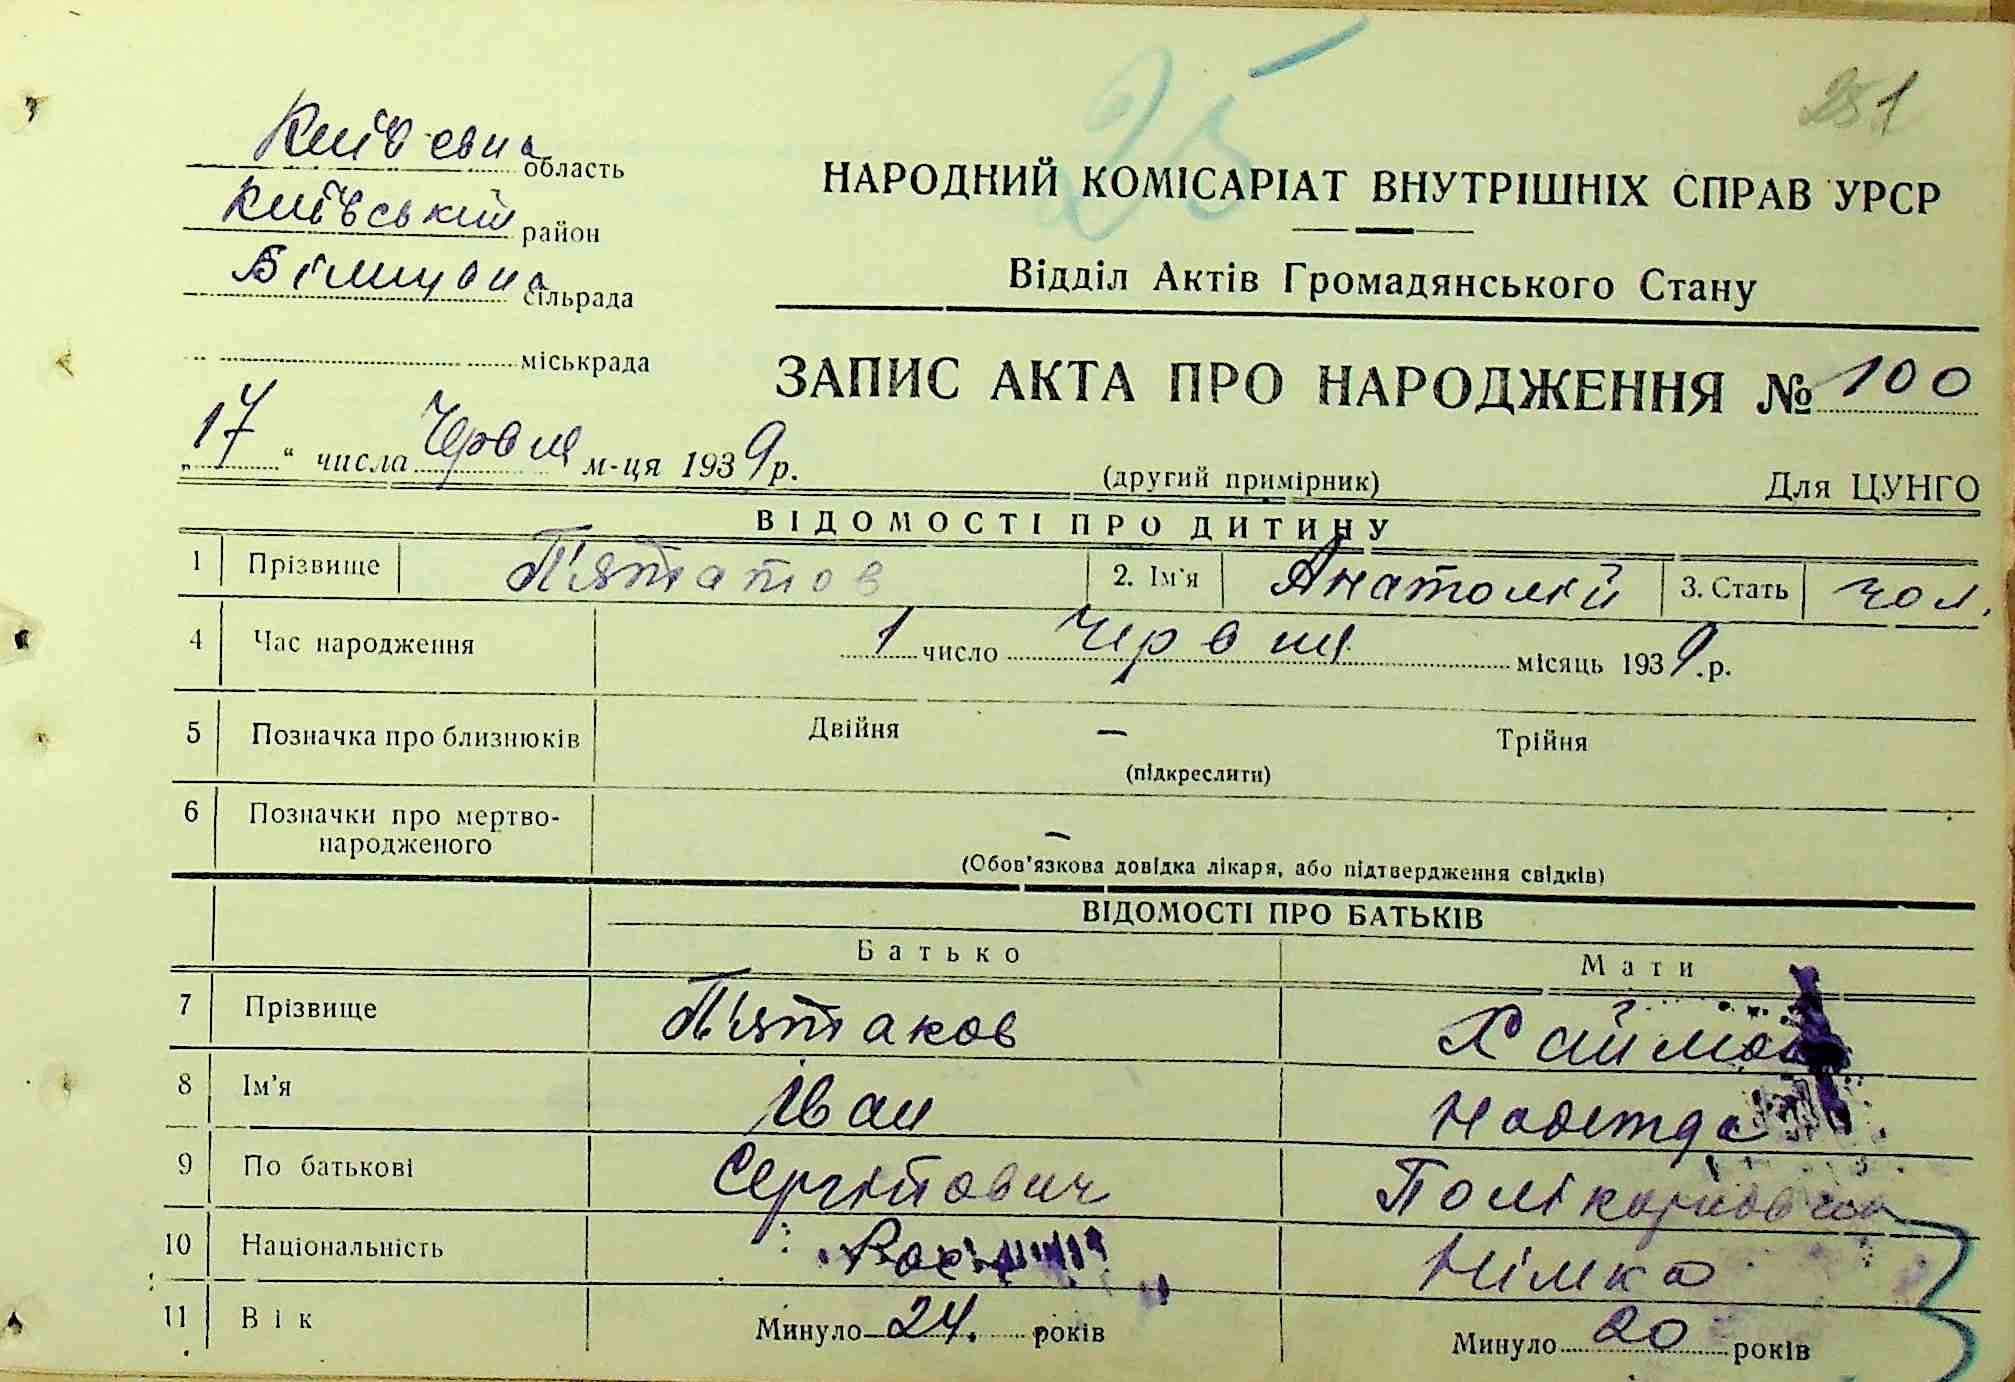 25
251
Київська область
НАРОДНИЙ КОМІСАРІАТ ВНУТРІШНІХ СПРАВ УРСР
Київський район
Відділ Актів Громадянського Стану
сільрада
міськрада
ЗАПИС АКТА ПРО НАРОДЖЕННЯ № 100
„17“ числа Червня м-ця 1939 р.
(другий примірник) Для ЦУНГО
ВІДОМОСТІ ПРО ДИТИНУ
1 Прізвище П'ятатов 2. Ім'я Анатолій 3. Стать чол.
4 Час народження 1 число Червня місяць 1939.р.
5 Позначка про близнюків Двійня — Трійня
(підкреслити)
6 Позначки про мертво-
народженого —
(Обов'язкова довідка лікаря, або підтвердження свідків)
ВІДОМОСТІ ПРО БАТЬКІВ
Батько Мати
7 Прізвище П'ятаков
8 Ім'я Іван Надежда
9 По батькові Сергійович Полікарповна
10 Національність Німка
11 Вік Минуло 24. років Минуло 20 років